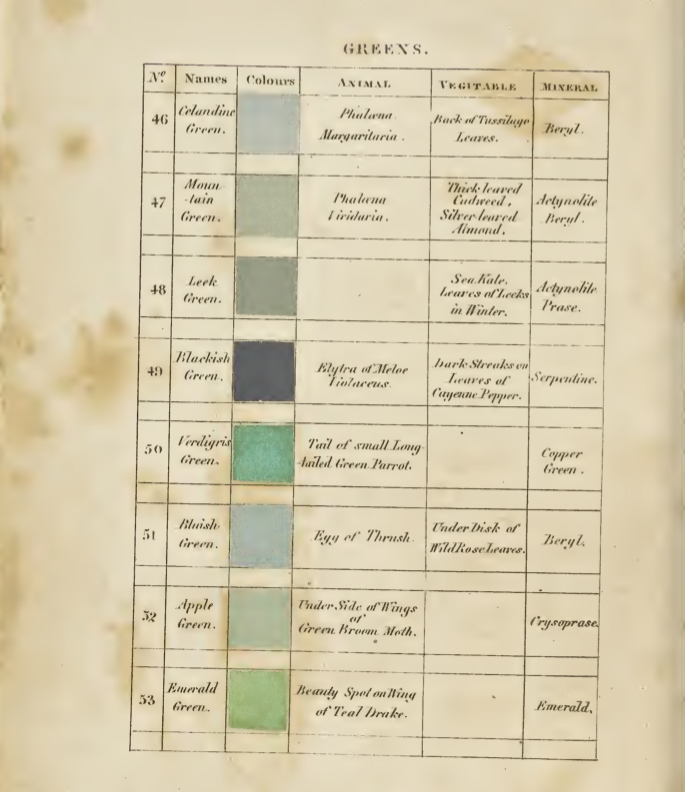 GREENS.
Nº Names Colours ANIMAL VEGITABLE MINERAL
46 Celandine Green. Phalæna Margaritaria. Back of Tussilage Leaves. Beryl.
47 Moun-tain Green. Phalæna Viridaria. Thick leaved Cudweed, Silver leaved Almond. Actynolite Beryl.
48 Leek Green. Sea Kale. Leaves of Leeks in Winter. Actynolite Prase.
49 Blackish Green. Elytra of Meloe Violaceus. Dark Streaks on Leaves of Cayenne Pepper. Serpentine.
50 Verdigris Green. Tail of small Long-tailed Green Parrot. Copper Green.
51 Bluish Green. Egg of Thrush. Under Disk of Wild Rose Leaves. Beryl.
52 Apple Green. Under Side of Wings of Green Broom Moth. Crysoprase.
53 Emerald Green. Beauty Spot on Wing of Teal Drake. Emerald.